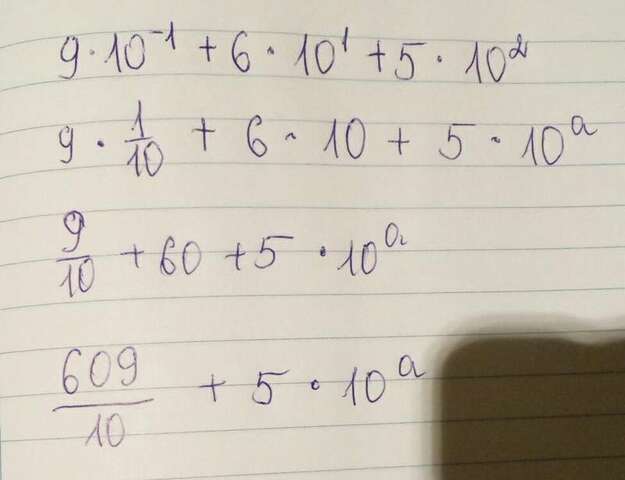 9 · 10⁻¹ + 6 · 10¹ + 5 · 10²
9 · 1/10 + 6 · 10 + 5 · 10ᵃ
9/10 + 60 + 5 · 10ᵃ
609/10 + 5 · 10ᵃ